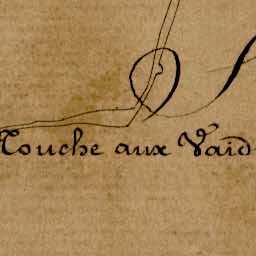 Touche aux Vaid